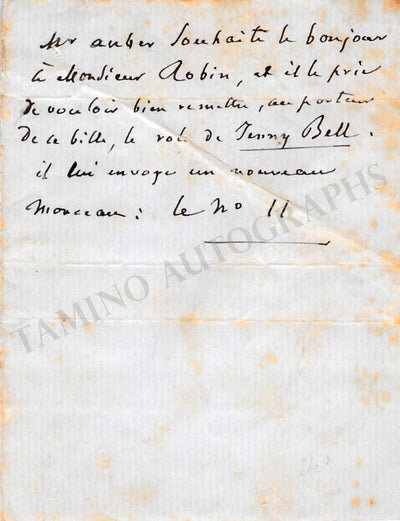 Mr auber Souhaite le bonjour
à Monsieur Robin, et il le prie
de vouloir bien remettre, au porteur
de ce billet, le rôle de Jenny Bell.
il lui envoye un nouveau
morceau : le no 11
TAMINO AUTOGRAPHS